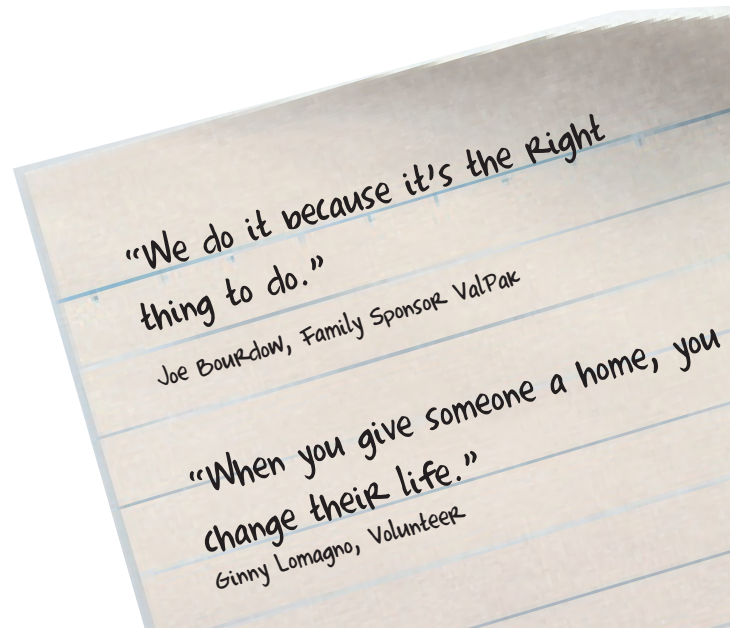 “We do it because it's the Right
thing to do.”
Joe Bourdow, Family Sponsor ValPak
“When you give someone a home, you
change their life.”
Ginny Lomagno, Volunteer